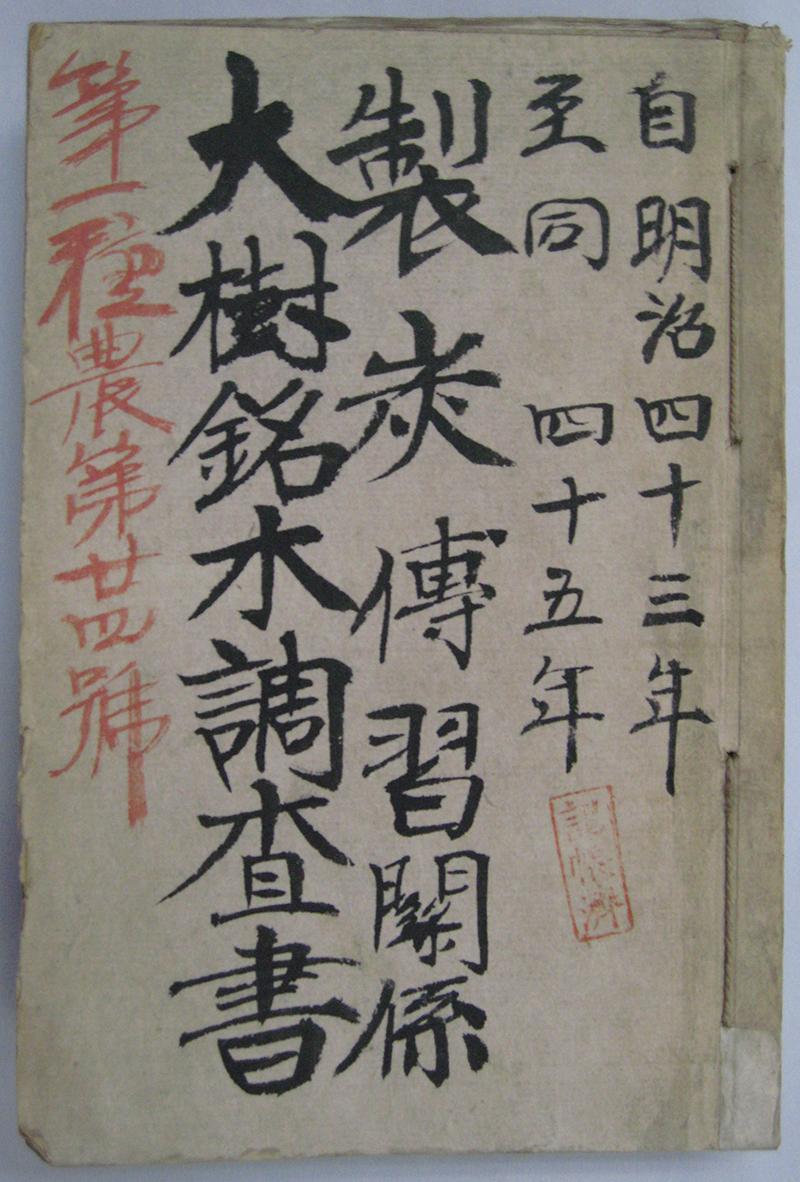 自明治四十三年
至同四十五年
記帳済
製炭傳習關係
大樹銘木調査書
第一種農第廿四號